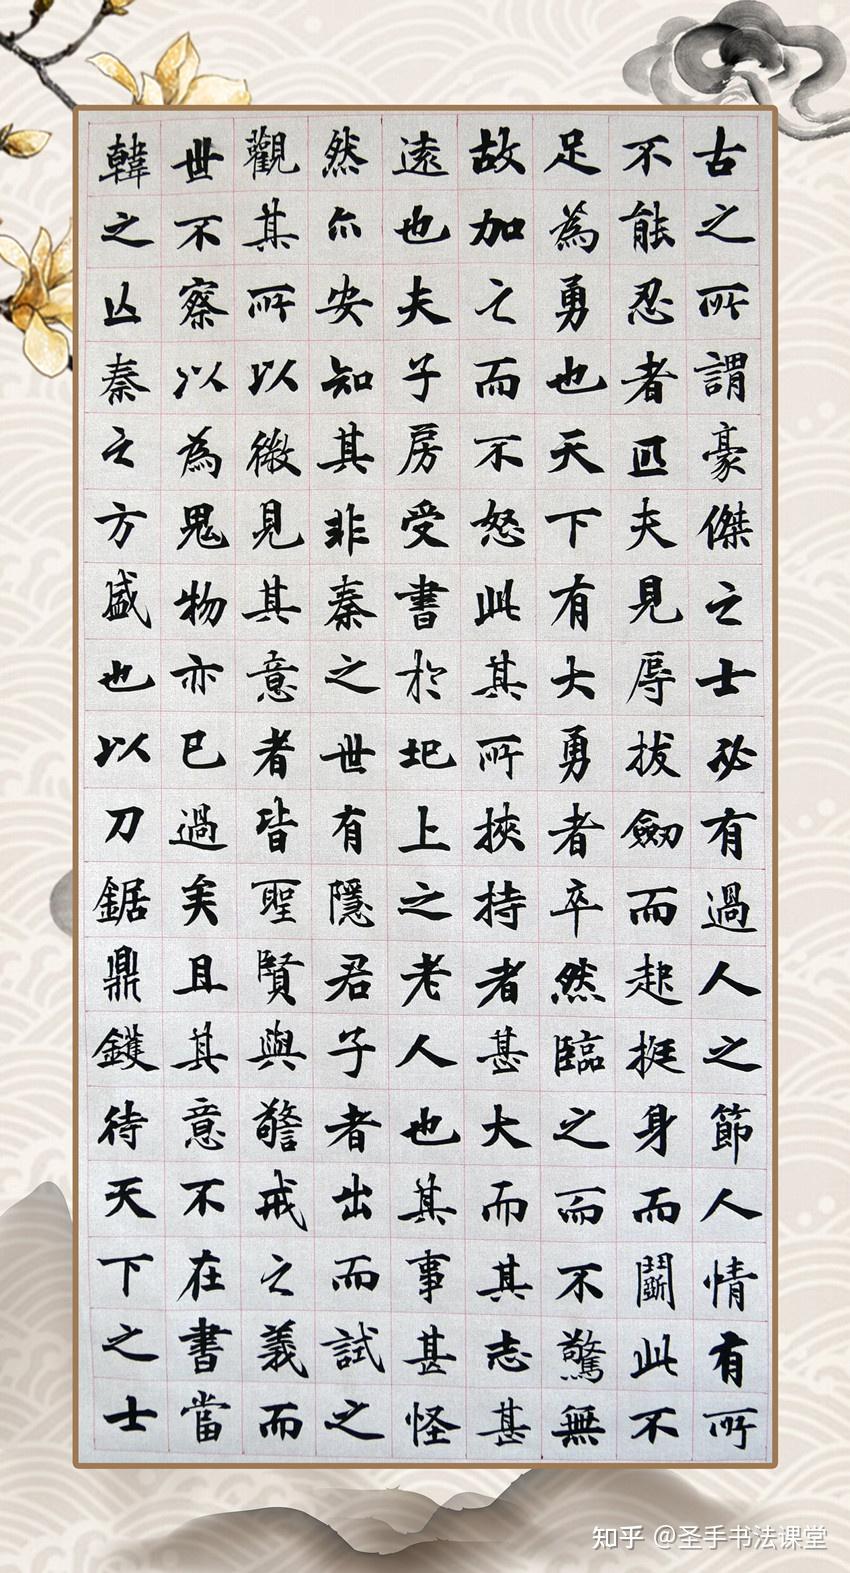 古之所謂豪傑之士必有過人之節人情有所
不能忍者匹夫見辱拔劒而起挺身而鬭此不
足為勇也天下有大勇者卒然臨之而不驚無
故加之而不怒此其所挾持者甚大而其志甚
遠也夫子房受書於圯上之老人也其事甚怪
然尒安知其非秦之世有隱君子者出而試之
觀其所以微見其意者皆聖賢與警戒之義而
世不察以為鬼物亦已過矣且其意不在書當
韓之亾秦之方盛也以刀鋸鼎鑊待天下之士
知乎 @圣手书法课堂